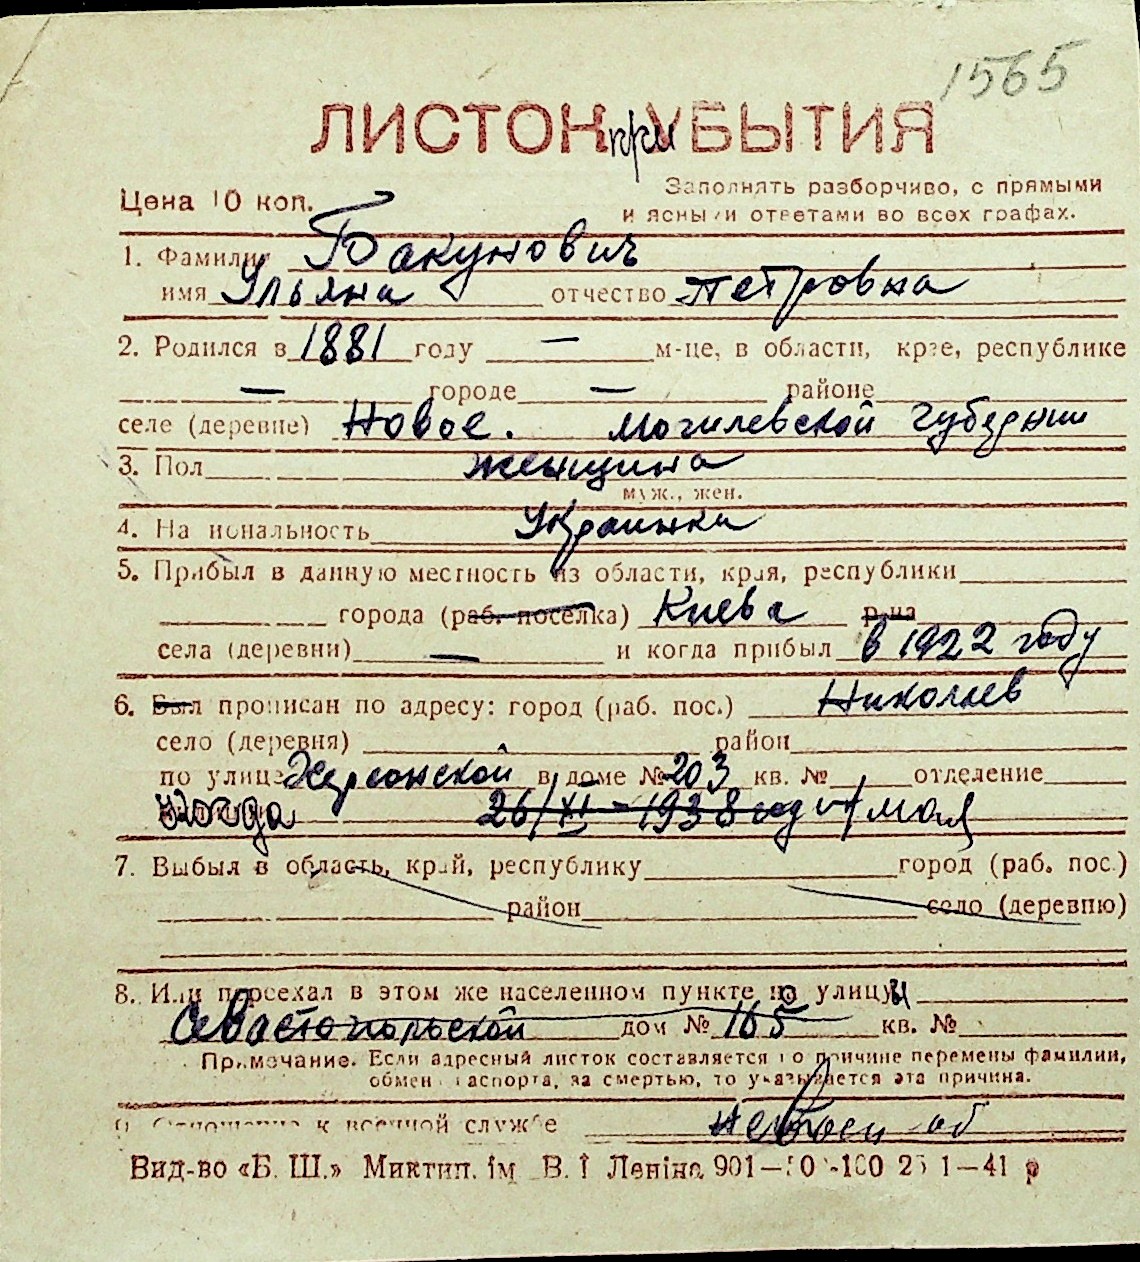 1565
ЛИСТОК при УБЫТИЯ
Цена 10 коп.
Заполнять разборчиво, с прямыми
и ясными ответами во всех графах.
1. Фамилия Бакунович
имя Ульяна отчество Петровна
2. Родился в 1881 году — м-це, в области, крае, республике
— городе — районе
селе (деревне) Новое. Могилевской губернии
3. Пол женщина
муж., жен.
4. Национальность Украинка
5. Прибыл в данную местность из области, края, республики
города (раб. поселка) Киева р-на
села (деревни) — и когда прибыл в 1922 году
6. Был прописан по адресу: город (раб. пос.) Николаев
село (деревня) район
по улице Херсонской в доме № 203 кв. № отделение
когда 26/XI – 1938 мая
7. Выбыл в область, край, республику город (раб. пос.)
район село (деревню)
8. Или переехал в этом же населенном пункте на улицу
Севастопольской дом № 165 кв. №
Примечание. Если адресный листок составляется по причине перемены фамилии,
обмена паспорта, за смертью, то указывается эта причина.
9. Отношение к военной службе
Вид-во «Б. Ш.» Миктип. ім В. І Леніна 901— -100 25 1—41 р